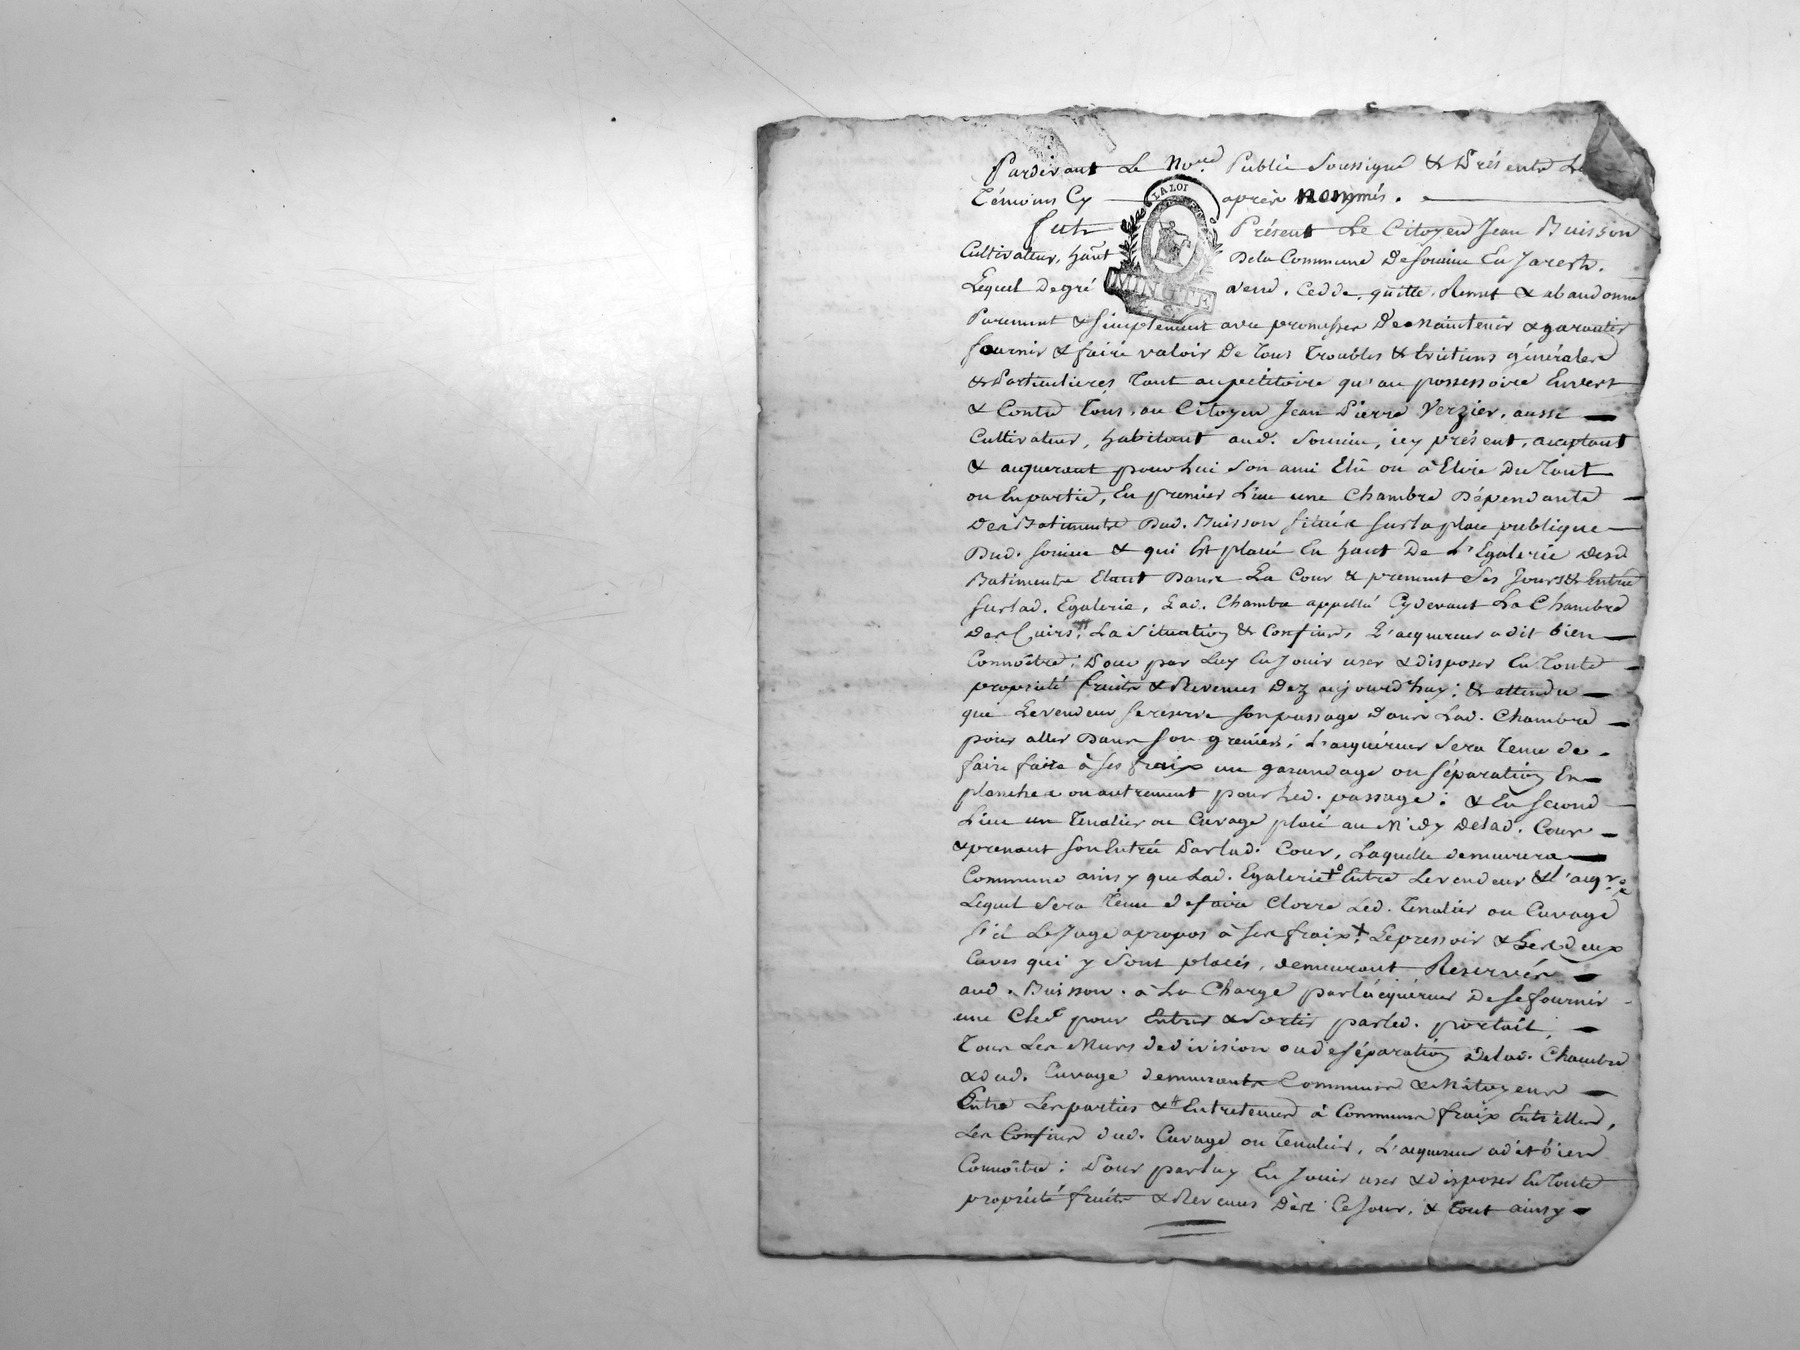 Pardevant Le No.re Public Soussigné & Présents Les
Témoins Cy après nommés.
LA LOI
MINUTE
Fut Présent Le Citoyen Jean Buisson
Cultivateur, hãnt Dela Commune De Soucieu En Jarest.
Lequel De gré vend, Cedde, quitte, Remet & abandonne
Purement & simplement avec promesses De maintenir & garantir
fournir & faire valoir De tous troubles & Evictions générales
& Particulieres tant au petitoire qu'au possessoire Envers
& Contre tous, au Citoyen Jean Pierre Verzier, aussi
Cultivateur, habitant aud. Soucieu, icy présent, acceptant
& acquerant pour Lui Son ami Elû ou à Elire Du tout
ou En partie, En premier Lieu une Chambre Dépendante
Des Batiments Dud. Buisson Située Sur la place publique
Dud. Soucieu & qui Est placé En haut De L'Egalerie Desd
Batiments Etant Dans La Cour & prennent Ses Jours & Entrée
Sur lad. Egalerie, Lad. Chambre appellé Cydevant La Chambre
Des Cuirs, La Situation & Confins, L'acquereur a dit bien
Connoître; Pour par Luy En Jouir user & disposer En toute
propriété fruits & Revenus Dez aujourd'huy; & attendu
que Le vendeur Se reserve Son passage Dans Lad. Chambre
pour aller Dans Son grenier; L'acquéreur Sera tenu de
faire faire à Ses fraix un garandage ou Séparation En
planches ou autrement pour Led. passage; & En Second
Lieu un tenalier ou Cuvage placé au Midy Delad. Cour
& prenant Son Entrée Par lad. Cour, Laquelle demeurera
Commune ainsy que Lad. Egalerie Entre Le vendeur & l'acqr.
Lequel Sera tenu de faire Clorre Led. tenalier ou Cuvage
S'il Le Juge apropos à Ses fraix. Le pressoir & Les deux
Cuves qui y Sont placés, demeurant Reservés
aud. Buisson. à La Charge par L'acquéreur De Se fournir
une Clef pour Entrer & Sortir par led. portail
Tous Les Murs de division ou de Séparation Delad. Chambre
& dud. Cuvage demeurants Communs & Mitoyens
Entre Les parties & Entretenus à Communs fraix Entr'elles,
Les Confins dud. Cuvage ou tenalier, L'acquereur a dit bien
Connoître; Pour par luy En Jouir user & disposer En toute
propriété fruits & Revenus Dèz Ce Jour, & tout ainsy